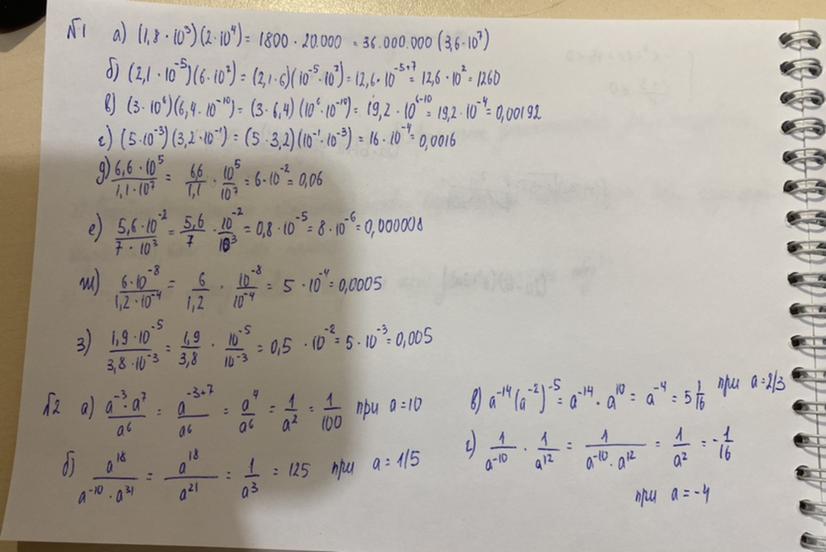 №1 а) (1,8 · 10³)(2 · 10⁴) = 1800 · 20.000 = 36.000.000 (3,6 · 10⁷)
б) (2,1 · 10⁻⁵)(6 · 10⁷) = (2,1 · 6)(10⁻⁵ · 10⁷) = 12,6 · 10⁻⁵⁺⁷ = 12,6 · 10² = 1260
в) (3 · 10⁶)(6,4 · 10⁻¹⁰) = (3 · 6,4)(10⁶ · 10⁻¹⁰) = 19,2 · 10⁶⁻¹⁰ = 19,2 · 10⁻⁴ = 0,00192
г) (5 · 10⁻³)(3,2 · 10⁻¹) = (5 · 3,2)(10⁻¹ · 10⁻³) = 16 · 10⁻⁴ = 0,0016
д) 6,6 · 10⁵ / 1,1 · 10⁷ = 6,6 / 1,1 · 10⁵ / 10⁷ = 6 · 10⁻² = 0,06
е) 5,6 · 10⁻² / 7 · 10³ = 5,6 / 7 · 10⁻² / 10³ = 0,8 · 10⁻⁵ = 8 · 10⁻⁶ = 0,000008
ж) 6 · 10⁻⁸ / 1,2 · 10⁻⁴ = 6 / 1,2 · 10⁻⁸ / 10⁻⁴ = 5 · 10⁻⁴ = 0,0005
з) 1,9 · 10⁻⁵ / 3,8 · 10⁻³ = 1,9 / 3,8 · 10⁻⁵ / 10⁻³ = 0,5 · 10⁻² = 5 · 10⁻³ = 0,005
№2 а) a⁻³ · a⁷ / a⁶ = a⁻³⁺⁷ / a⁶ = a⁴ / a⁶ = 1 / a² = 1 / 100 при a = 10
б) a¹⁸ / a⁻¹⁰ · a³¹ = a¹⁸ / a²¹ = 1 / a³ = 125 при a = 1/5
в) a⁻¹⁴(a⁻²)⁻⁵ = a⁻¹⁴ · a¹⁰ = a⁻⁴ = 5 1/16 при a = 2/3
г) 1 / a⁻¹⁰ · 1 / a¹² = 1 / a⁻¹⁰ · a¹² = 1 / a² = - 1 / 16
при a = -4